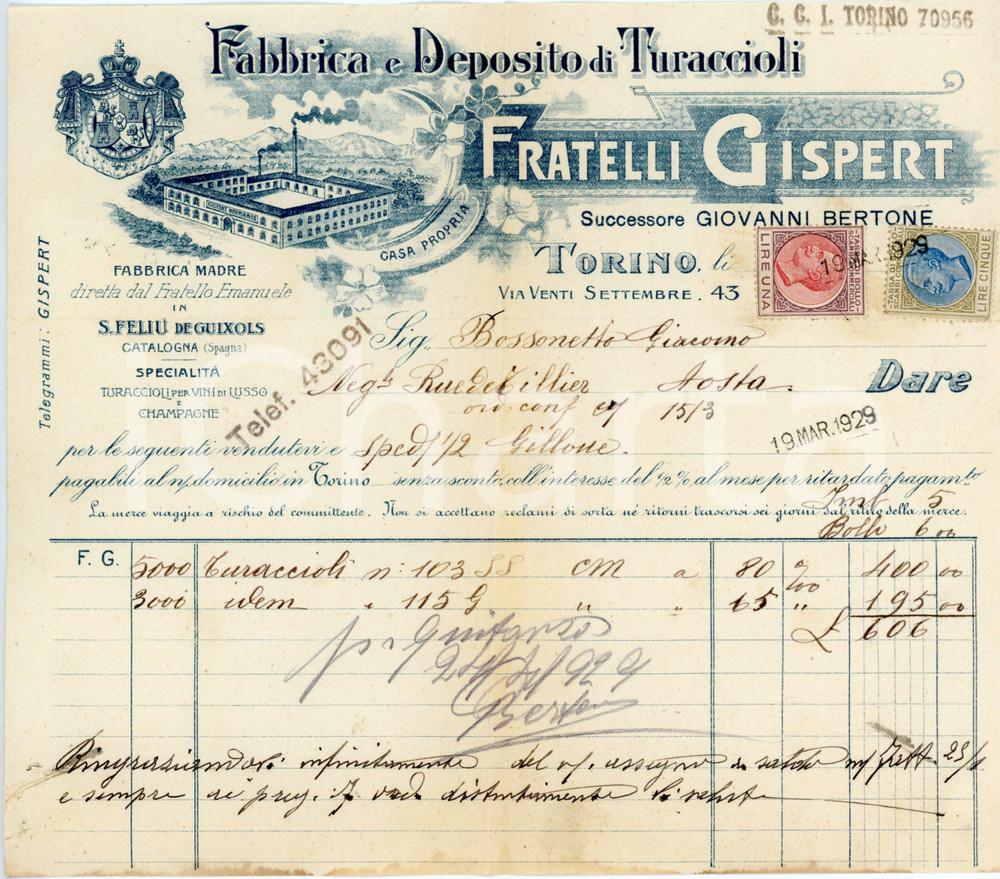 C. C. I. TORINO 70956
Fabbrica e Deposito di Turaccioli
FRATELLI GISPERT
GISPERT HERMANOS
CASA PROPRIA
Successore GIOVANNI BERTONE
TORINO, li 19 MAR. 1929
VIA VENTI SETTEMBRE, 43
LIRE UNA
TASSA DI BOLLO
LIRE CINQUE
TASSA DI BOLLO
Telegrammi: GISPERT
FABBRICA MADRE
diretta dal Fratello Emanuele
IN
S. FELIU DE GUIXOLS
CATALOGNA (Spagna)
SPECIALITÀ
TURACCIOLI PER VINI DI LUSSO
E
CHAMPAGNE
Telef. 43091
Sig. Bossonetto Giacomo
Negte Rue de Tillier Aosta.
Dare
ord. conf 15/3
19 MAR. 1929
per le seguenti vendutevi e sped/ 1/2 Gillone.
pagabili al n/ domicilio in Torino senza sconto coll'interesse del 1/2 % al mese per ritardato pagamto
La merce viaggia a rischio del committente. Non si accettano reclami di sorta nè ritorni trascorsi sei giorni dal ritiro della merce.
5
Bollo 6 00
F. G. 5000 Turaccioli n: 103 SS CM a 80 400 00
3000 idem " 115 G " " 65 " 195 00
£ 606
pr Quitanza
929
Bertone
Ringraziandovi infinitamente del v/ assegno a saldo n/ fatt. 25/1
e sempre ai preg. distintamente
Charta